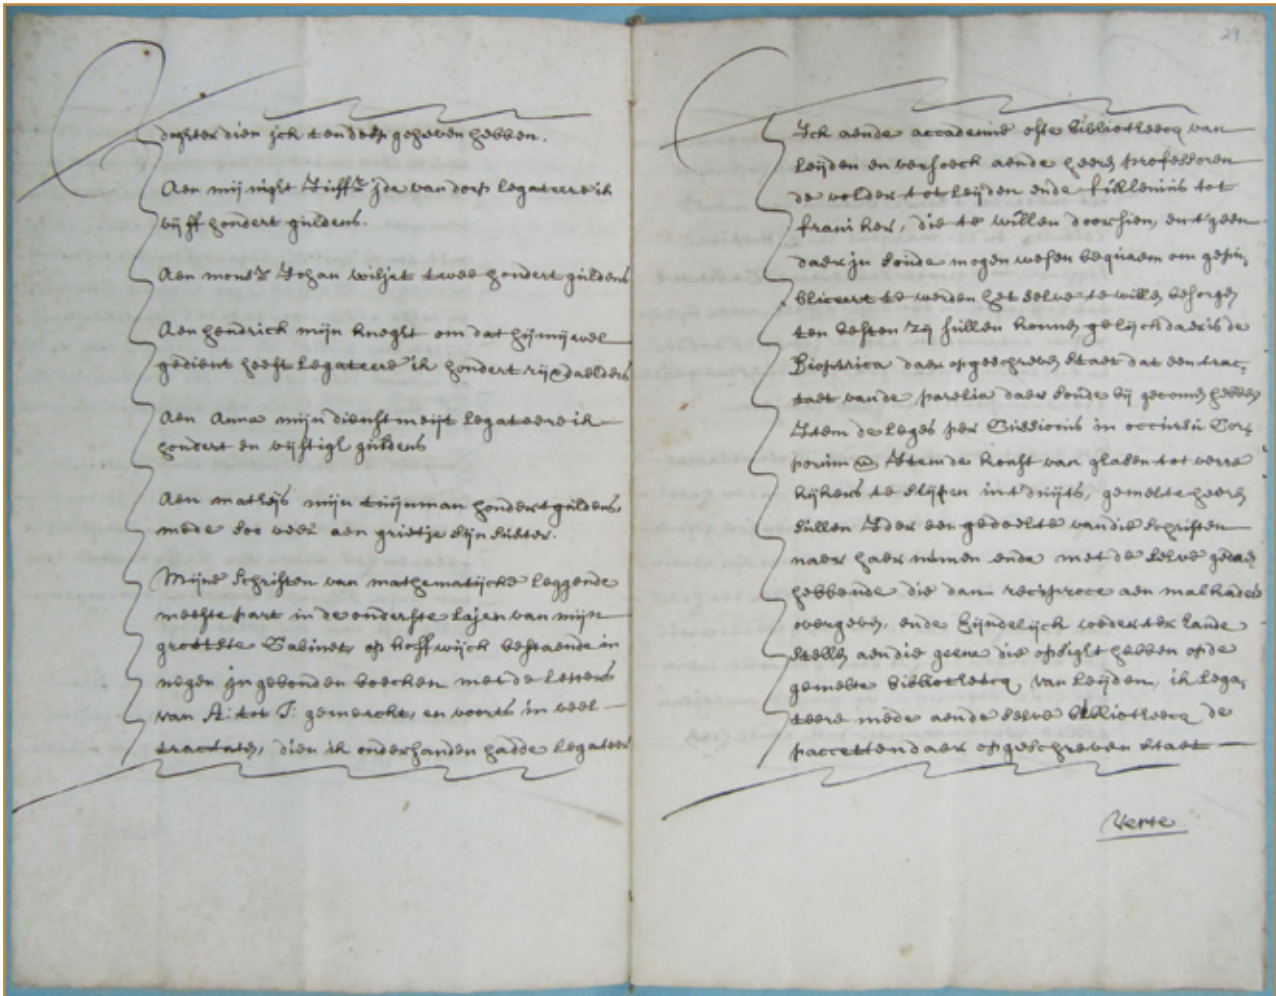 dochter dien ick ten doop geheven hebben.
Aen mij night Juffr. Ide van dorp legateere ik
vijff hondert guldens.
Aen monsr. Johan wiljet twee hondert guldens
Aen hendrick mijn knegt om dat hij mij wel
gedient heeft legateere ik hondert rijxdaelders
Aen Anna mijn dienstmeijt legateere ik
hondert en vijftigh guldens
Aen mathijs mijn tuijnman hondert guldens,
mede soo veel aen grietje sijn suster.
Mijne schriften van mathematijcke leggende
meeste part in de onderste lajen van mijn
grootste Cabinet, op hoffwijck bestaende in
negen ingebonden boecken met de letters
van A: tot I: gemerckt, en voorts in veel
tractaten, dien ik onderhanden hadde legateer
29
Ick aende accademie ofte bibliotheecq van
Leijden en versoeck aende heeren professoren
de volder tot Leijden ende fullenius tot
franiker, die te willen doorsien, en t'geen
daer in soude mogen wesen bequaem om gepu
bliceert te werden het selve te willen besorgen
ten besten zij sullen konnen, gelijck daer is de
Dioptrica daer op geschreven staet dat een trac
taet van de parelia daer soude bij gecomen hebben
Item de leges per Cussionis in occursu Cor
porum Item de konst van glasen tot verre
kijkers te slijpen in't duijts, gemelte heeren
sullen Ider een gedeelte van die schriften
naer haer nemen ende met de selve gedaen
hebbende die dan reciproce aen malkander
overgeven, ende Eijndelijck weder ter hande
stellen aen die geene die opsight hebben op de
gemelte bibliotheecq van Leijden, ik lega
teere mede aende selve bibliotheecq de
paccetten daer op geschreven staet
Verte